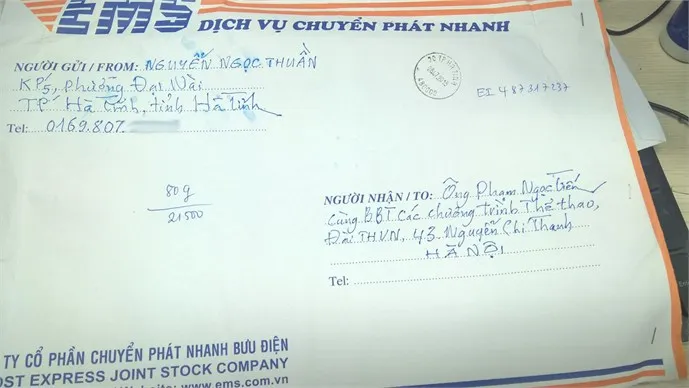 EMS
DỊCH VỤ CHUYỂN PHÁT NHANH
NGƯỜI GỬI / FROM: NGUYỄN NGỌC THUẦN
KP5, phường Đại Nài
TP Hà Tĩnh, tỉnh Hà Tĩnh
Tel: 0169.807.
EI 487317237
80g
21500
NGƯỜI NHẬN / TO: Ông Phạm Ngọc Tiến
cùng BBT các chương trình Thể thao,
Đài THVN, 43 Nguyễn Chí Thanh
HÀ NỘI
Tel:
TY CỔ PHẦN CHUYỂN PHÁT NHANH BƯU ĐIỆN
OST EXPRESS JOINT STOCK COMPANY
www.ems.com.vn